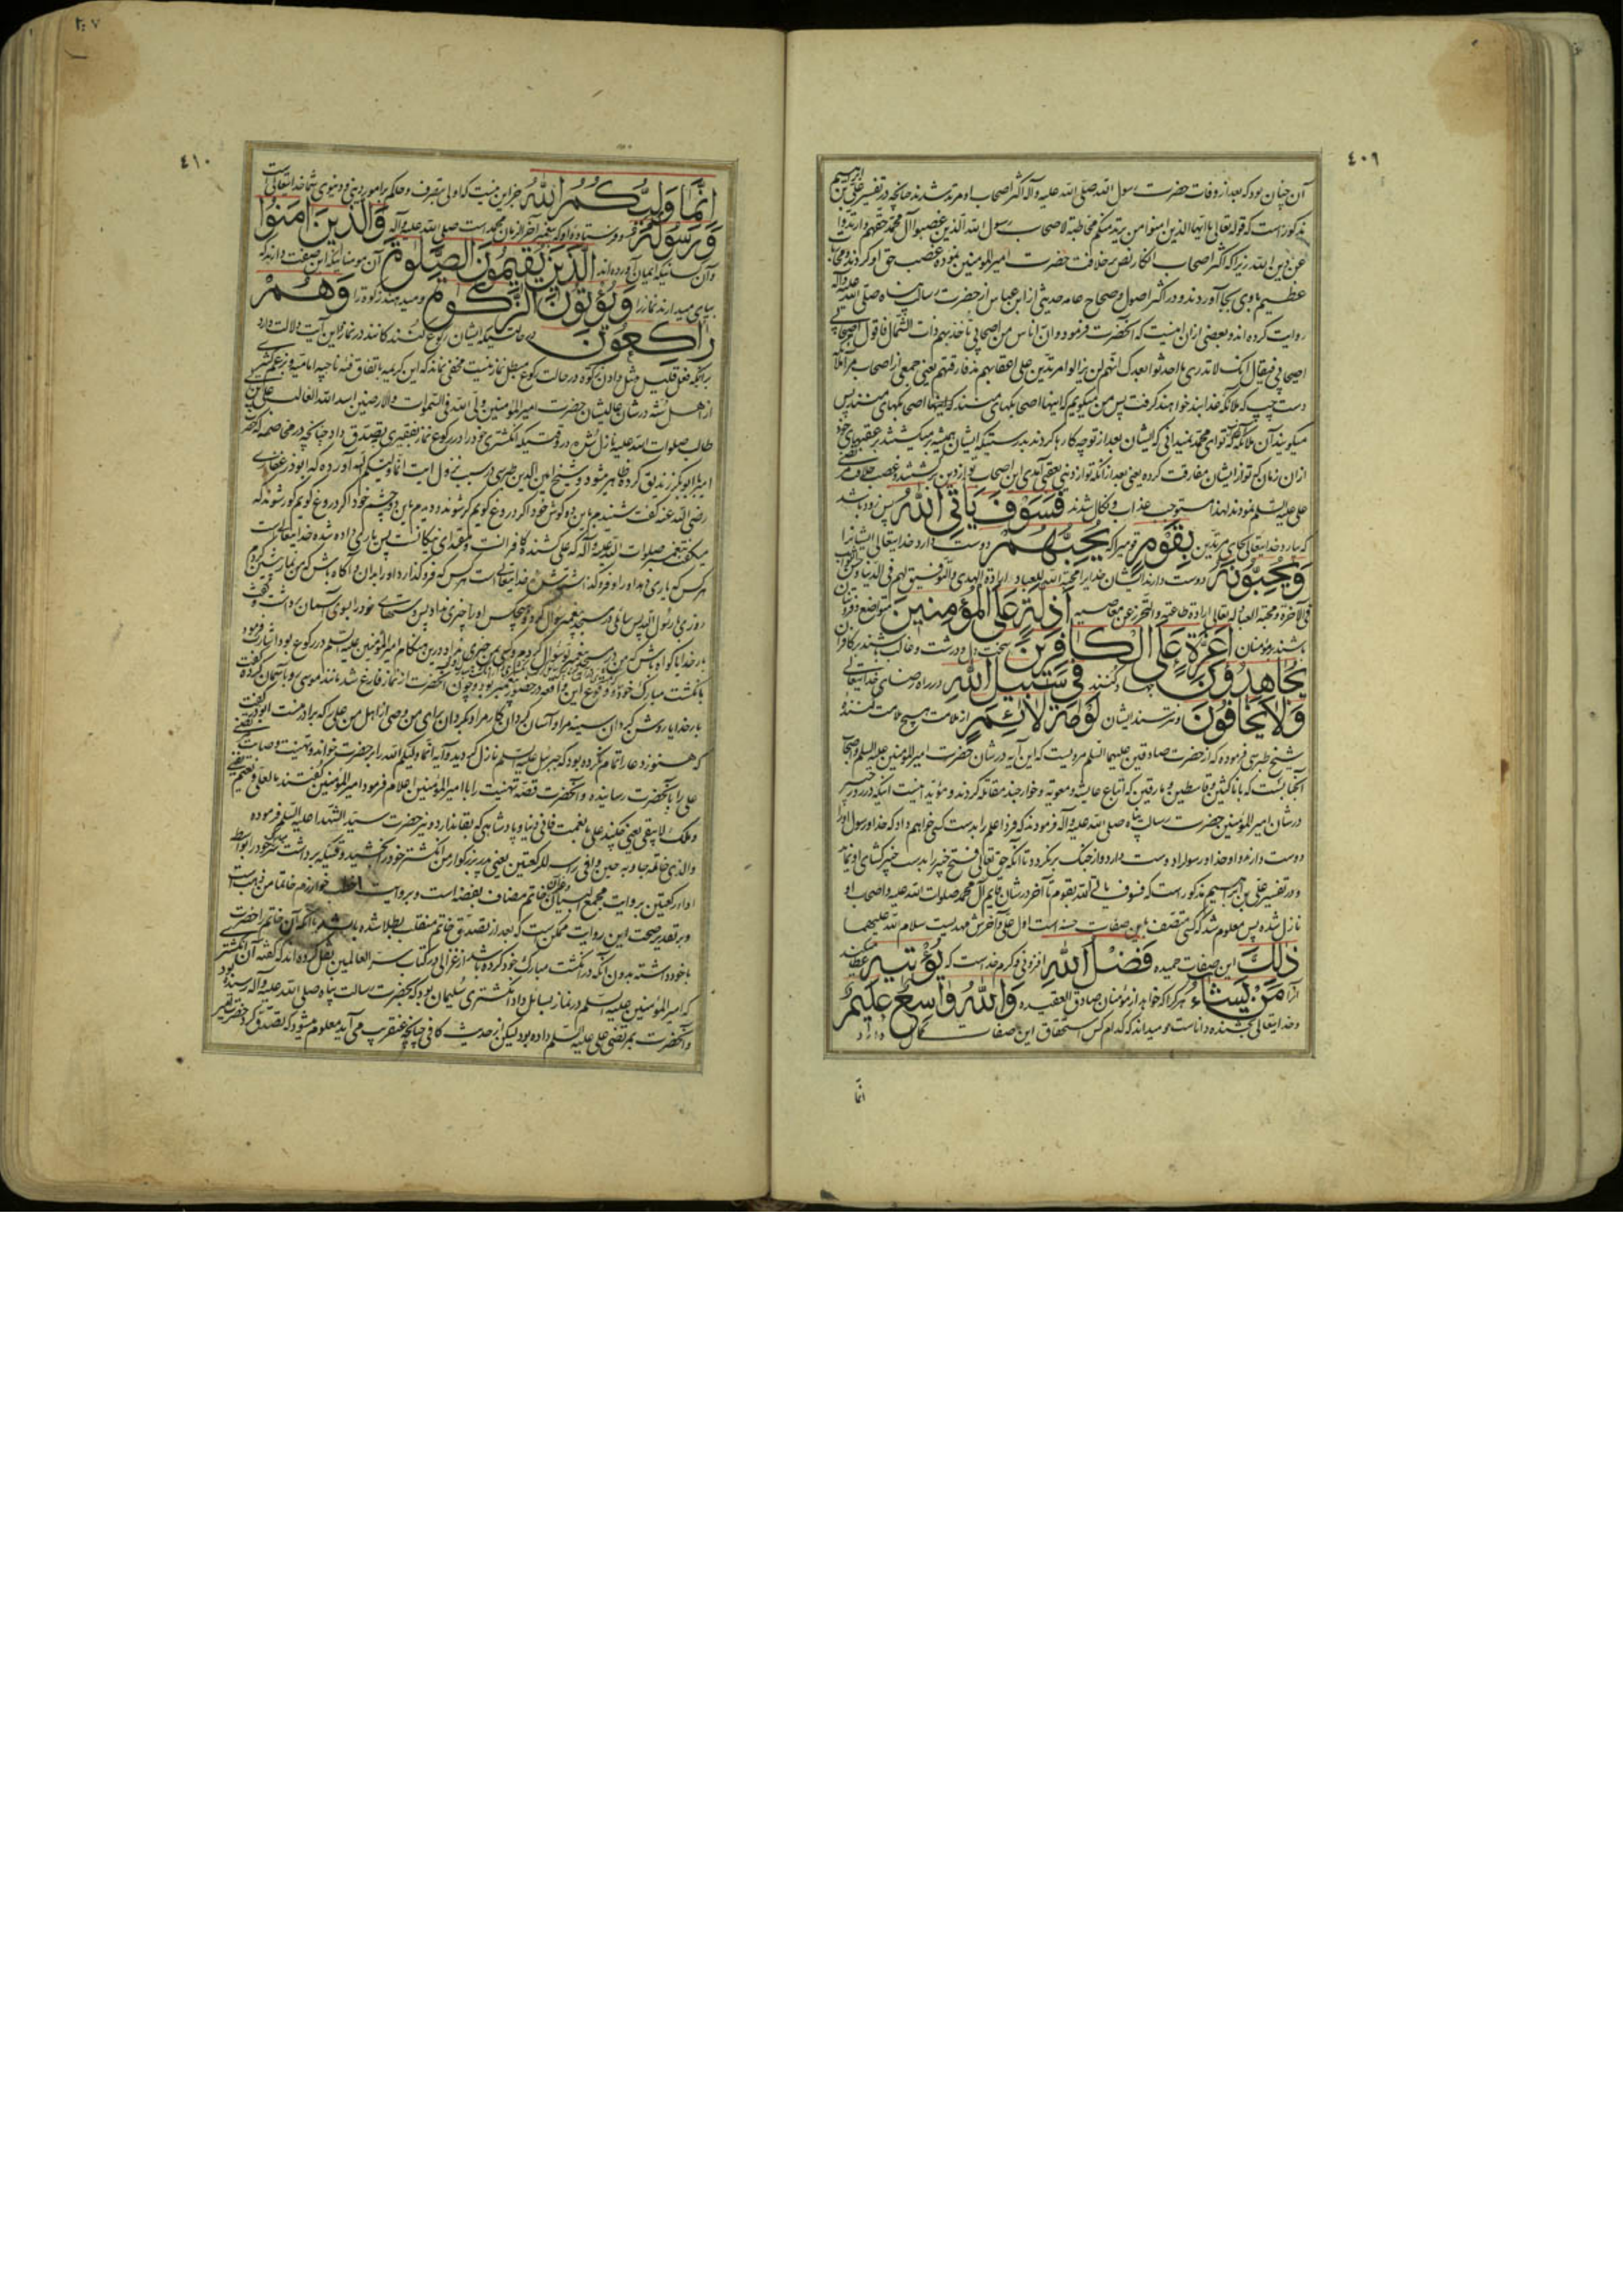 ٤٠٩
آن چنان بود که بعد از وفات حضرت رسول الله صلی الله علیه وآله اکثر اصحاب او مرتد شدند چنانچه در تفسیر علی بن ابراهیم
مذکور است که قوله تعالی یا ایها الذین امنوا من یرتد منکم مخاطبة لاصحاب رسول الله الذین غصبوا آل محمد حقهم وارتدوا
عن دین الله زیرا که اکثر اصحاب انکار نص بر خلافت حضرت امیرالمؤمنین نموده غصب حق او کردند و
عظیم باوی بجا آوردند و در اکثر اصول و صحاح عامه حدیثی از ابن عباس از حضرت رسالت پناه صلی الله علیه وآله
روایت کرده اند و بعضی از ان اینست که آنحضرت فرمود وان اناس من اصحابی یأخذ بهم ذات الشمال فاقول اصحابی
اصحابی فیقال انک لا تدری ما احدثوا بعدک انهم لن یزالوا مرتدین علی اعقابهم مذ فارقتهم یعنی جمعی از اصحاب مرا
دست چپ که ملائکه خدایند خواهند گرفت پس من میگویم که اینها اصحابکهای منند که اینها اصحابکهای منند پس
میگویند آن ملائکه که توای محمد نمیدانی که ایشان بعد از تو چه کارها کردند بدرستیکه ایشان همیشه بر میگشتند بر عقبهای خود
از ان زمان که تو از ایشان مفارقت کرده یعنی بعد از آنکه تو از دنیا بعقبی آمدی این اصحاب تو از دین برگشتند و غصب خلافت
علی علیه السلم نمودند لهذا مستوجب عذاب و نکال شدند فَسَوْفَ يَأْتِي اللّٰهُ پس زود باشد
که بیارد خدایتعالی بجای مرتدین بِقَوْمٍ قومیرا که يُحِبُّهُمْ دوست دارد خدایتعالی ایشانرا
وَيُحِبُّونَهُ و دوست دارند ایشان خدایرا محبة الله للعباد ارادة الهدی والتوفیق لهم فی الدنیا وحسن الثواب
فی الآخرة ومحبة العباد له تعالی ارادة طاعته والتحرز عن معاصیه اَذِلَّةٍ عَلَى الْمُؤْمِنِينَ متواضع و فروتنان
باشند بر مؤمنان اَعِزَّةٍ عَلَى الْكَافِرِينَ سخت دل و درشت و غالب باشند بر کافران
يُجَاهِدُونَ جهاد کنند فِي سَبِيلِ اللّٰهِ در راه رضای خدایتعالی
وَلَا يَخَافُونَ و نترسند ایشان لَوْمَةَ لَائِمٍ از ملامت هیچ ملامت کننده
شیخ طبرسی فرموده که از حضرت صادقین علیهما السلم مرویست که این آیه در شان حضرت امیرالمؤمنین علیه السلم و اصحاب
آنجنابست که با ناکثین و قاسطین و مارقین که اتباع عایشه و معویه و خوارجند مقاتله کردند و مؤید اینست اینکه در روز خیبر
در شان امیرالمؤمنین حضرت رسالت پناه صلی الله علیه وآله فرمودند که فردا علم را بدست کسی خواهم داد که خدا و رسول او را
دوست دارند و او خدا و رسولرا دوست دارد و از جنگ بر نگردد تا آنکه حق تعالی فتح خیبر را بدست خیبر گشای او نماید
و در تفسیر علی بن ابراهیم مذکور است که فسوف یأتی الله بقوم تا آخر در شان قایم آل محمد صلوات الله علیه و اصحاب او
نازل شده پس معلوم شد که کسی متصف باین صفات حسنه است اول علی و آخرش مهدیست سلام الله علیهما
ذٰلِكَ این صفات حمیده فَضْلُ اللّٰهِ افزونی و کرم خداست که يُؤْتِيهِ عطا میکند
آنرا مَنْ يَشَاءُ هر کرا که خواهد از مؤمنان صادق العقیده وَاللّٰهُ وَاسِعٌ عَلِيمٌ
و خدایتعالی بخشنده و داناست و میداند که کدام کس استحقاق این صفات کمال دارد
انما
٤١٠
اِنَّمَا وَلِيُّكُمُ اللّٰهُ جز این نیست که اولی بتصرف و حاکم بر امور دینی و دنیوی شما خدایتعالی است
وَرَسُولُهُ و فرستاده او که پیغمبر آخر الزمان محمد است صلی الله علیه وآله وَالَّذِينَ اٰمَنُوا
و آن کسانیکه ایمان آورده اند الَّذِينَ يُقِيمُونَ الصَّلٰوةَ آن مومنانیکه این صفت دارند که
بپای میدارند نماز را وَيُؤْتُونَ الزَّكٰوةَ و میدهند زکوة را وَهُمْ
رَاكِعُونَ در حالتیکه ایشان رکوع کنندگانند در نماز این آیت دلالت دارد
بر آنکه فعل قلیل مثل دادن زکوة در حالت رکوع مبطل نماز نیست مخفی نماند که این کریمه باتفاق فئه ناجیه امامیه و بزعم کثیری
از اهل سنه در شان عالیشان حضرت امیرالمؤمنین ولی الله فی السموات والارضین اسد الله الغالب علی بن
طالب صلوات الله علیه نازل شده در وقتیکه انگشتری خود را در رکوع نماز بفقیری تصدق داد چنانچه در مخاصمه که حضرت
امیر با ابوبکر زندیق کرده ظاهر میشود و شیخ امین الدین طبرسی در سبب نزول آیت انما ولیکم الله آورده که ابوذر غفاری
رضی الله عنه گفت شنیدم باین دو گوش خود اگر دروغ گویم کر شوند و دیدم باین دو چشم خود اگر دروغ گویم کور شوند که
میگفت پیغمبر صلوات الله علیه وآله که علی کشنده کافرانست و مقتدای نیکانست پس یاری داده شده خدایتعالی است
هر کس که یاری دهد او را و فرو گذاشته شده خدایتعالی است هر کس که فرو گذارد او را بدان و آگاه باش که من نماز پیشین کردم
روزی با رسول الله پس سائلی در مسجد پیغمبر سوال کرد و هیچکس او را چیزی نداد پس دستهای خود را بسوی آسمان برداشت و گفت
بار خدایا گواه باش که من در مسجد پیغمبر تو سوال کردم و کسی بمن چیزی نداد درین هنگام امیرالمؤمنین علیه السلم در رکوع بود اشارت فرمود
بانگشت مبارک خود و وقوع این واقعه در حضور پیغمبر بود و چون آنحضرت از نماز فارغ شد مانند موسی رو بآسمان کرده گفت
بار خدایا روشن گردان سینه مرا و آسان گردان کار مرا و بگردان برای من وصی از اهل من علی را که برادر منست ابوذر گفت
که هنوز دعا را تمام نکرده بود که جبرئیل علیه السلم نازل گردید و آیه انما ولیکم الله را بر حضرت خوانده و تهنیت وصایت مرتضی
علی را بآنحضرت رسانیده و آنحضرت قصه تهنیت را با امیرالمؤمنین اعلام فرمود امیرالمؤمنین گفتند ما لعلی و نعیم یفنی
وملک لا یبقی یعنی چکند علی با نعمت فانی دنیا و پادشاهی که بقا ندارد و نیز حضرت سید الشهدا علیه السلم فرموده
ادا در کعتین بروایت مجمع البیان خاتم مضاف بفضه است و بروایت اخطب خوارزم خاتما من ذهب است
و بر تقدیر صحت این روایت ممکن است که بعد از تصدق خاتم منقلب بطلا شده باشد یا آنکه آن خاتم را حضرت
با خود داشته بدون آنکه در انگشت مبارک خود کرده باشد و از غزالی در کتاب سر العالمین نقل کرده اند که گفته آن انگشتری
که امیرالمؤمنین علیه السلم در نماز بسائل داد انگشتری سلیمان بود که بحضرت رسالت پناه صلی الله علیه وآله رسیده بود
و آنحضرت بمرتضی علی علیه السلم داده بود لیکن از حدیث کافی چنانچه عنقریب می آید معلوم میشود که تصدق کرد حضرت امیر